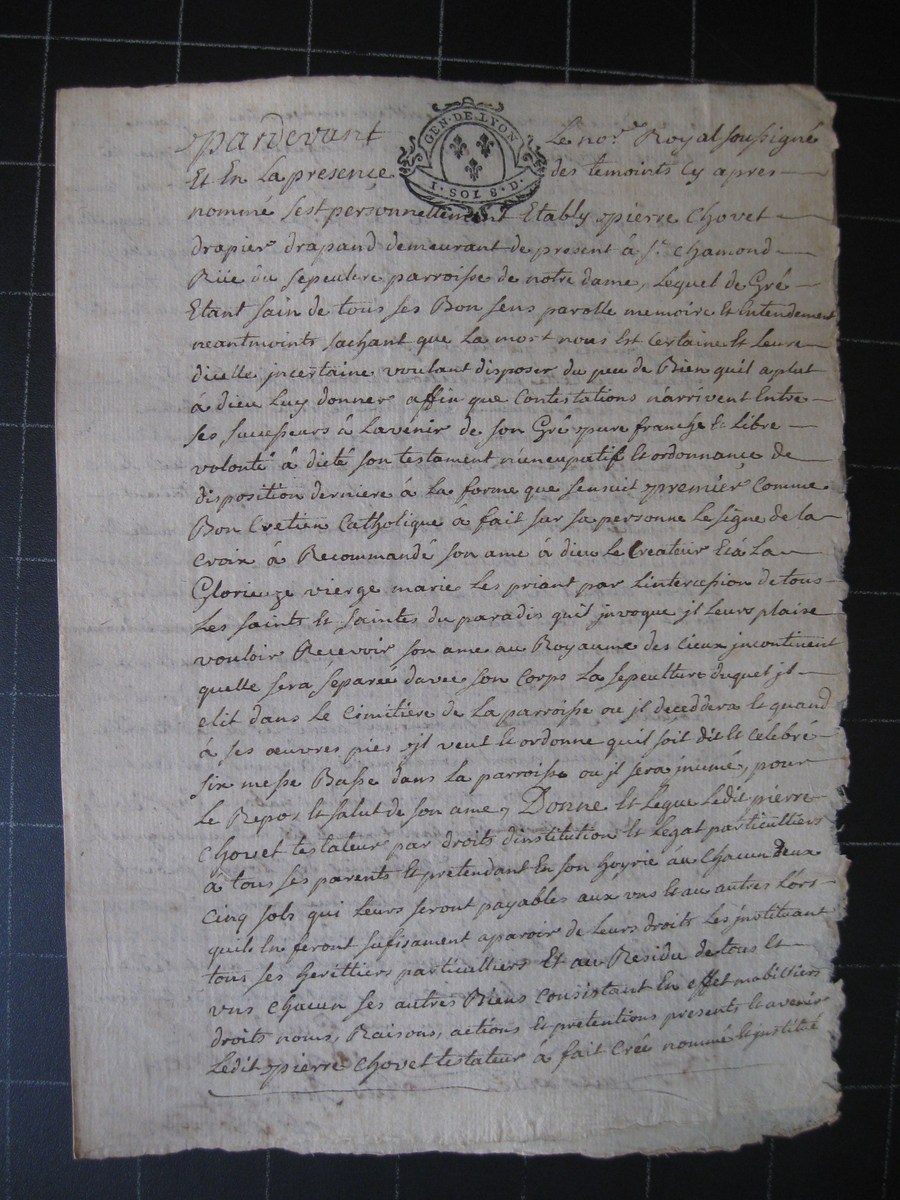 GEN·DE·LYON
1·SOL 8·D·
pardevant Le no.re Royal soussigné
Et En La presence des temoints Cy apres
nommé sest personnellement Etably pierre Chovet
drapier drapand demeurant de present à St. chamond
Rüe du sepulcre parroisse de notre dame, Lequel de Gré
Etant sain de tous ses Bon sens parolle memoire Et Entendement
neantmoints sachant que La mort nous Est Certaine Et Leure
dicelle jncertaine voulant disposer du peu de Bien quil a plut
à dieu Luy donner affin que Contestations n'arrivent Entre
ses successeurs à Lavenir de son Gré pure franche Et Libre
volonté à dicté son testament nuncupatif Et ordonnance de
disposition derniere à La forme que sensuit premier Comme
Bon Cretien Catholique à fait sur sa personne Le signe de la
Croix à Recommandé son ame à dieu Le Createur Et à La
Glorieuze vierge marie Les priant par Lintercession de tous
Les saints Et saintes du paradis quil jnvoque jl Leurs plaise
vouloir Recevoir son ame au Royaume des Cieux jncontinent
quelle sera separée davec son Corps La sepculture duquel jl
elit dans Le Cimitiere de La parroisse ou jl deceddera Et quand
à ses œuvres pies jl veut Et ordonne quil soit dit Et Celebré
six messe Basse dans La parroisse ou jl sera jnumé, pour
Le Repos Et salut de son ame, Donne Et Legue Ledit pierre
Chovet testateur par droits d'institution Et Legat particulliers
à tous ses parents Et pretendant En son hoyrie àu Chacun deux
Cinq sols qui Leurs seront payables aux uns Et au autres Lors
quils En feront sufisament aparoir de Leurs droits Les jnstituant
tous ses heritiers particulliers Et au Residu de tous Et
uns Chacun ses autres Biens Consistant En effet mobilliers
droits noms, Raisons, actions Et pretentions presents Et avenir
Ledit pierre Chovet testateur à fait Créé nommé Et jnstitué